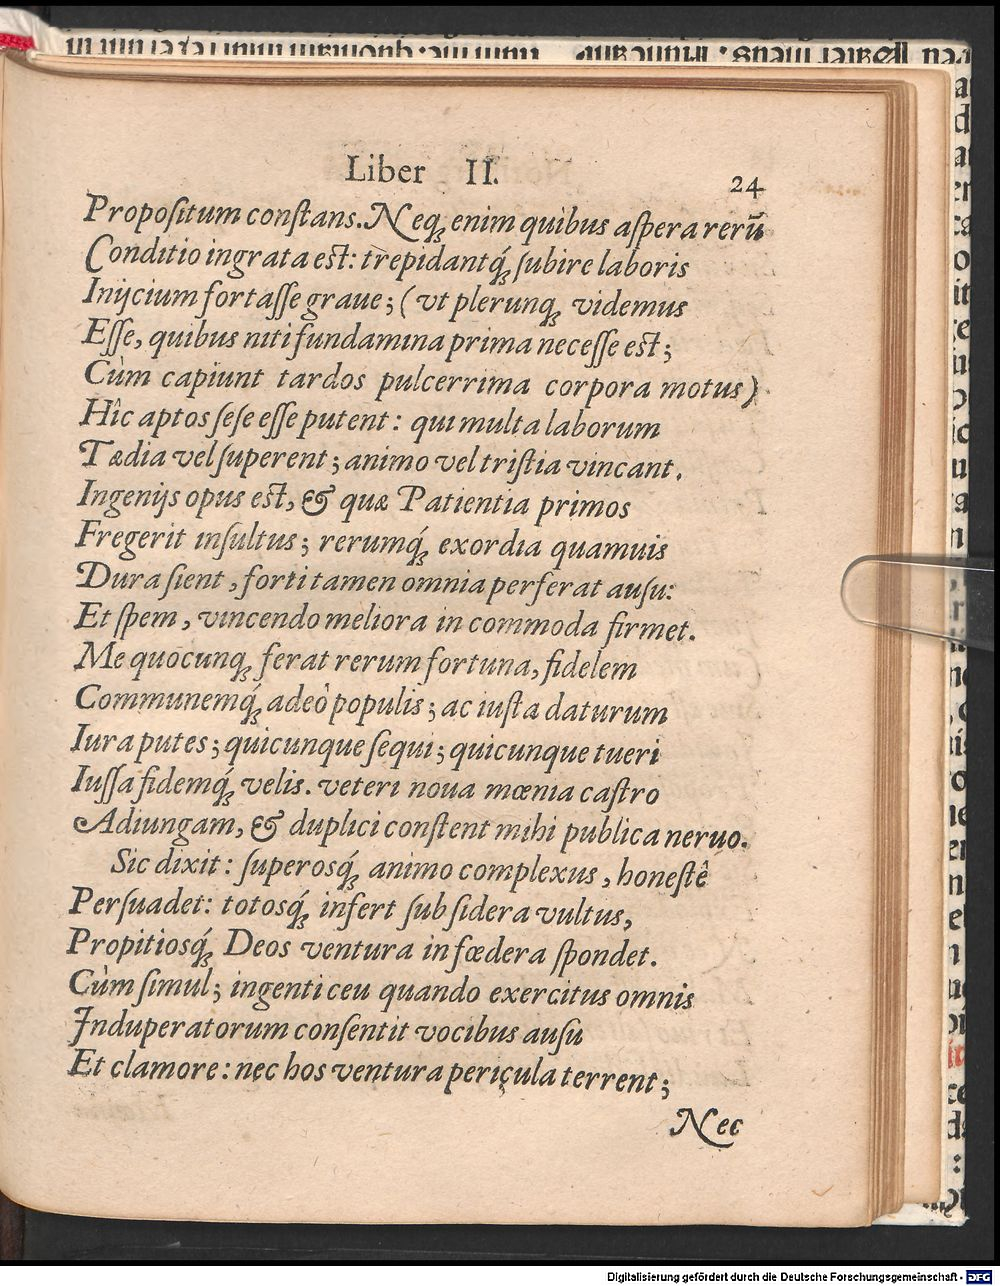 Liber II.
24
Propoſitum conſtans. Neq; enim quibus aſpera rerū
Conditio ingrata est: trepidantq́; ſubire laboris
Inijcium fortaſſe graue; (vt plerunq; videmus
Eſſe, quibus niti fundamina prima neceſſe est;
Cùm capiunt tardos pulcerrima corpora motus)
Hîc aptos ſeſe eſſe putent: qui multa laborum
Tædia vel ſuperent; animo vel triſtia vincant.
Ingenijs opus est, & quæ Patientia primos
Fregerit inſultus; rerumq́; exordia quamuis
Dura ſient, forti tamen omnia perferat auſu:
Et ſpem, vincendo meliora incommoda firmet.
Me quocunq; ferat rerum fortuna, fidelem
Communemq́; adeò populis; ac iuſta daturum
Iura putes; quicunque ſequi; quicunque tueri
Iuſſa fidemq́; velis. veteri noua mœnia caſtro
Adiungam, & duplici conſtent mihi publica neruo.
Sic dixit: ſuperosq́; animo complexus, honeſtê
Perſuadet: totosq́; infert ſub ſidera vultus,
Propitiosq́; Deos ventura in fœdera ſpondet.
Cùm ſimul; ingenti ceu quando exercitus omnis
Induperatorum conſentit vocibus auſu
Et clamore: nec hos ventura pericula terrent;
Nec
Digitalisierung gefördert durch die Deutsche Forschungsgemeinschaft - DFG